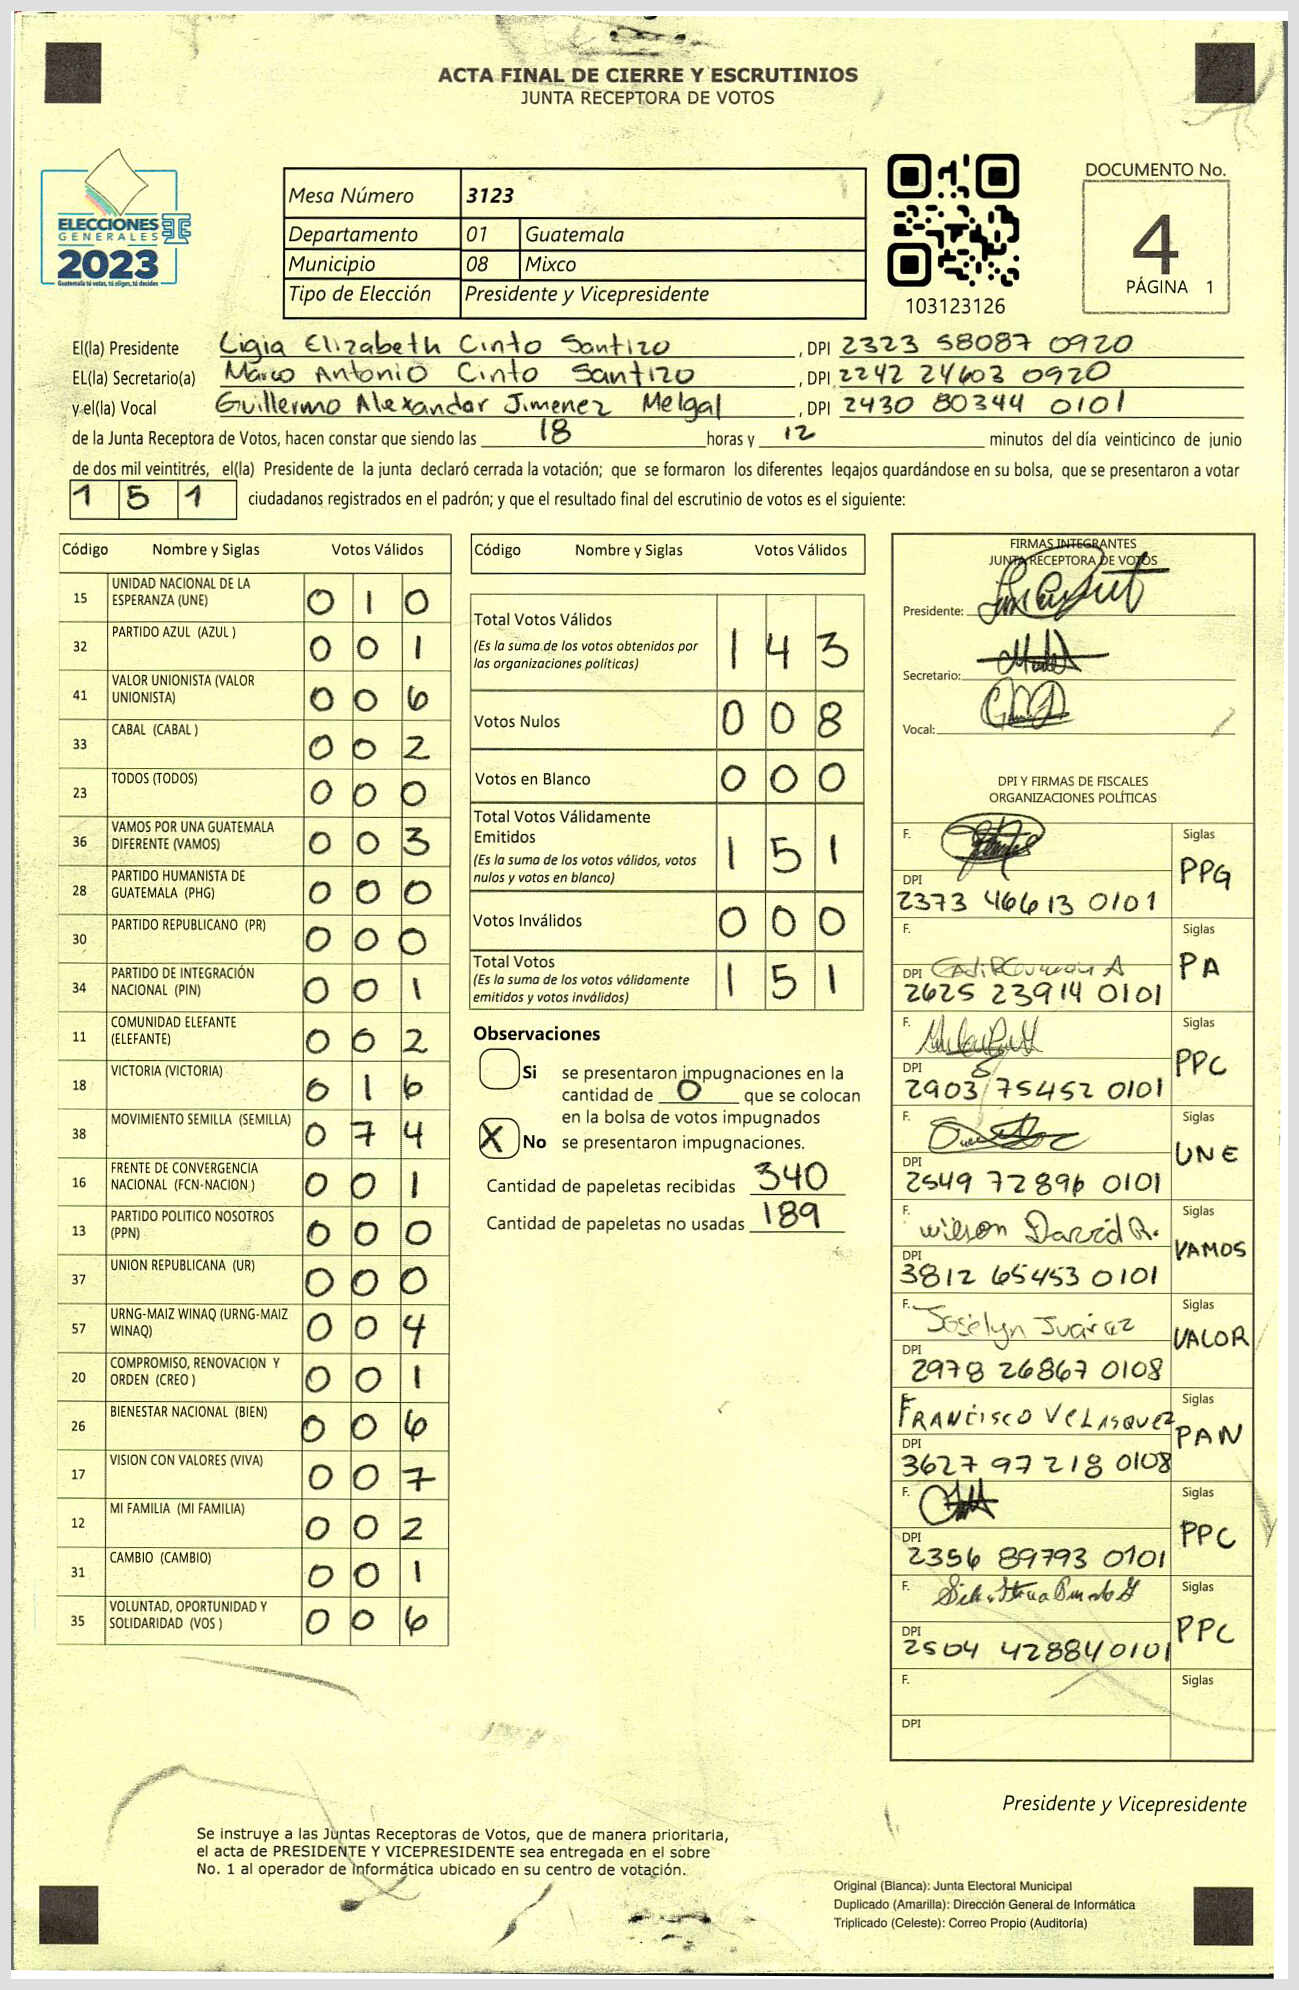 ACTA FINAL DE CIERRE Y ESCRUTINIOS
JUNTA RECEPTORA DE VOTOS
ELECCIONES
GENERALES
2023
Guatemala tú votas, tú eliges, tú decides
Mesa Número 3123
Departamento 01 Guatemala
Municipio 08 Mixco
Tipo de Elección Presidente y Vicepresidente
103123126
DOCUMENTO No.
4
PÁGINA 1
El(la) Presidente Ligia Elizabeth Cinto Santizo , DPI 2323 58087 0920
EL(la) Secretario(a) Marco Antonio Cinto Santizo , DPI 2242 24603 0920
y el(la) Vocal Guillermo Alexander Jimenez Melgal , DPI 2430 80344 0101
de la Junta Receptora de Votos, hacen constar que siendo las 18 horas y 12 minutos del día veinticinco de junio
de dos mil veintitrés, el(la) Presidente de la junta declaró cerrada la votación; que se formaron los diferentes legajos guardándose en su bolsa, que se presentaron a votar
151 ciudadanos registrados en el padrón; y que el resultado final del escrutinio de votos es el siguiente:
Código Nombre y Siglas Votos Válidos
15 UNIDAD NACIONAL DE LA ESPERANZA (UNE) 0 1 0
32 PARTIDO AZUL (AZUL ) 0 0 1
41 VALOR UNIONISTA (VALOR UNIONISTA) 0 0 6
33 CABAL (CABAL ) 0 0 2
23 TODOS (TODOS) 0 0 0
36 VAMOS POR UNA GUATEMALA DIFERENTE (VAMOS) 0 0 3
28 PARTIDO HUMANISTA DE GUATEMALA (PHG) 0 0 0
30 PARTIDO REPUBLICANO (PR) 0 0 0
34 PARTIDO DE INTEGRACIÓN NACIONAL (PIN) 0 0 1
11 COMUNIDAD ELEFANTE (ELEFANTE) 0 0 2
18 VICTORIA (VICTORIA) 0 1 6
38 MOVIMIENTO SEMILLA (SEMILLA) 0 7 4
16 FRENTE DE CONVERGENCIA NACIONAL (FCN-NACION ) 0 0 1
13 PARTIDO POLITICO NOSOTROS (PPN) 0 0 0
37 UNION REPUBLICANA (UR) 0 0 0
57 URNG-MAIZ WINAQ (URNG-MAIZ WINAQ) 0 0 4
20 COMPROMISO, RENOVACION Y ORDEN (CREO ) 0 0 1
26 BIENESTAR NACIONAL (BIEN) 0 0 6
17 VISION CON VALORES (VIVA) 0 0 7
12 MI FAMILIA (MI FAMILIA) 0 0 2
31 CAMBIO (CAMBIO) 0 0 1
35 VOLUNTAD, OPORTUNIDAD Y SOLIDARIDAD (VOS ) 0 0 6
Código Nombre y Siglas Votos Válidos
Total Votos Válidos 1 4 3
(Es la suma de los votos obtenidos por
las organizaciones políticas)
Votos Nulos 0 0 8
Votos en Blanco 0 0 0
Total Votos Válidamente
Emitidos 1 5 1
(Es la suma de los votos válidos, votos
nulos y votos en blanco)
Votos Inválidos 0 0 0
Total Votos 1 5 1
(Es la suma de los votos válidamente
emitidos y votos inválidos)
Observaciones
Si se presentaron impugnaciones en la
cantidad de 0 que se colocan
en la bolsa de votos impugnados
X No se presentaron impugnaciones.
Cantidad de papeletas recibidas 340
Cantidad de papeletas no usadas 189
FIRMAS INTEGRANTES
JUNTA RECEPTORA DE VOTOS
Presidente:
Secretario:
Vocal:
DPI Y FIRMAS DE FISCALES
ORGANIZACIONES POLÍTICAS
F. Siglas PPG
DPI 2373 46613 0101
F. Siglas PA
DPI 2625 23914 0101
F. Siglas PPC
DPI 2903 75452 0101
F. Siglas UNE
DPI 2549 72896 0101
F. Wilson David R. Siglas VAMOS
DPI 3812 65453 0101
F. Joselyn Juárez Siglas VALOR
DPI 2978 26867 0108
F. FRANCISCO VELASQUEZ Siglas PAN
DPI 3627 97218 0108
F. Siglas PPC
DPI 2356 89793 0101
F. Siglas PPC
DPI 2504 42884 0101
F. Siglas
DPI
Presidente y Vicepresidente
Se instruye a las Juntas Receptoras de Votos, que de manera prioritaria,
el acta de PRESIDENTE Y VICEPRESIDENTE sea entregada en el sobre
No. 1 al operador de informática ubicado en su centro de votación.
Original (Blanca): Junta Electoral Municipal
Duplicado (Amarilla): Dirección General de Informática
Triplicado (Celeste): Correo Propio (Auditoría)